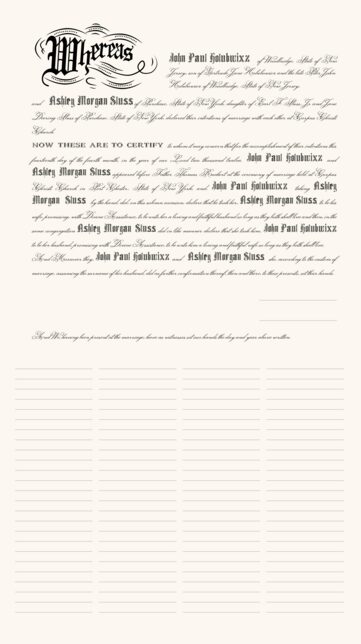 Whereas
John Paul Holubwixz of Woodbridge, State of New
Jersey, son of Gertrude Jane and the late Mr. John
of Woodbridge, State of New Jersey,
and Ashley Morgan Sluss of State of New York, daughter of Earl F. Sluss Jr. and Jane
Sluss of State of New York, declared their intentions of marriage with each other at Corpus Christi
Church.
NOW THESE ARE TO CERTIFY to whom it may concern that for the accomplishment of their intentions this
fourteenth day of the fourth month, in the year of our Lord two thousand twelve, John Paul Holubwixz and
Ashley Morgan Sluss appeared before Father Thomas at the ceremony of marriage held at Corpus
Christi Church in Port Chester, State of New York and John Paul Holubwixz taking Ashley
Morgan Sluss by the hand, did in this solemn manner, declare that he took her, Ashley Morgan Sluss to be his
wife, promising with Divine Assistance to be unto her a loving and faithful husband so long as they both shall live and then, in the
same congregation Ashley Morgan Sluss did in like manner, declare that she took him, John Paul Holubwixz
to be her husband, promising with Divine Assistance to be unto him a loving and faithful wife so long as they both shall live.
And Moreover they, John Paul Holubwixz and Ashley Morgan Sluss she, according to the custom of
marriage, assuming the surname of her husband, did in further confirmation thereof, then and there, to these presents, set their hands.
And We having been present at the marriage, have as witnesses set our hands the day and year above written.